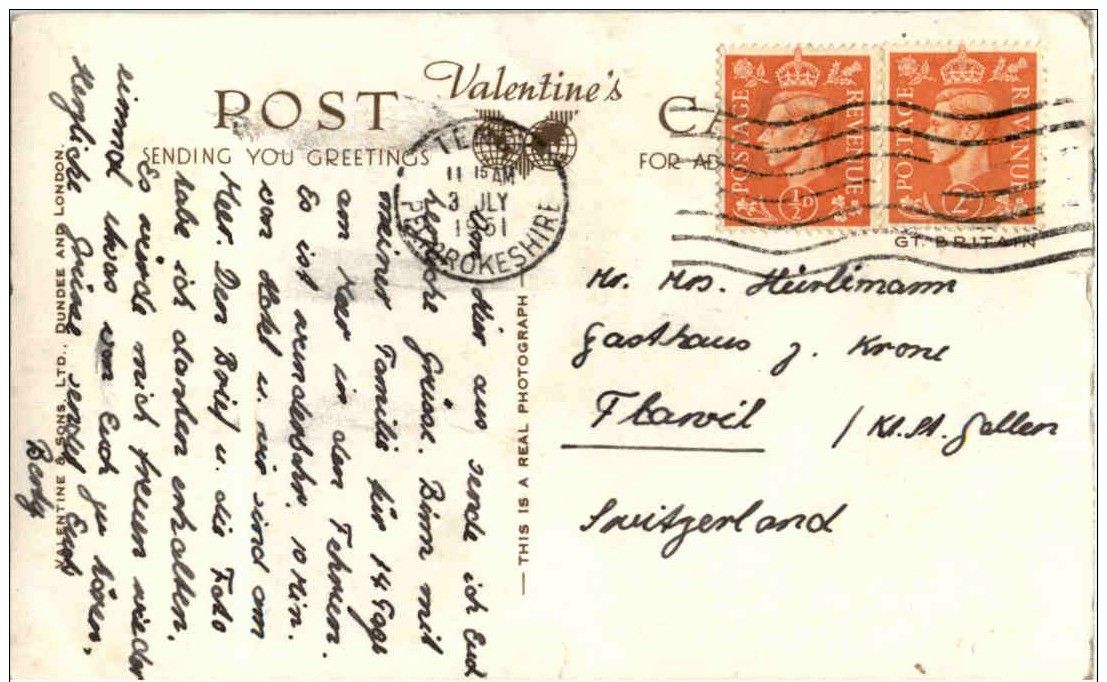 Valentine's
POST CA
SENDING YOU GREETINGS
FOR AD
TEN
11 15 AM
3 JLY
1951
PEMBROKESHIRE
POSTAGE REVENUE
½D
POSTAGE REVENUE
2D
GT. BRITAIN
Mr. Mrs. Hürlimann
Gasthaus z. Krone
Flawil / Kt. St. Gallen
Switzerland
Hier aus sende ich Euch
herzliche Grüsse. Binn mit
meiner Familie für 14 Tage
am Meer in den Fehrien.
Es ist wunderbahr. 10 Min.
vom Hotel u. wir sind am
Meer. Den Brief u. die Foto
habe ich danken erhalten.
Es würde mich freuen wieder
einmal etwas von Euch zu hören.
Herzliche Grüsse sendet Euch
Berty
— THIS IS A REAL PHOTOGRAPH —
VALENTINE & SONS LTD., DUNDEE AND LONDON.